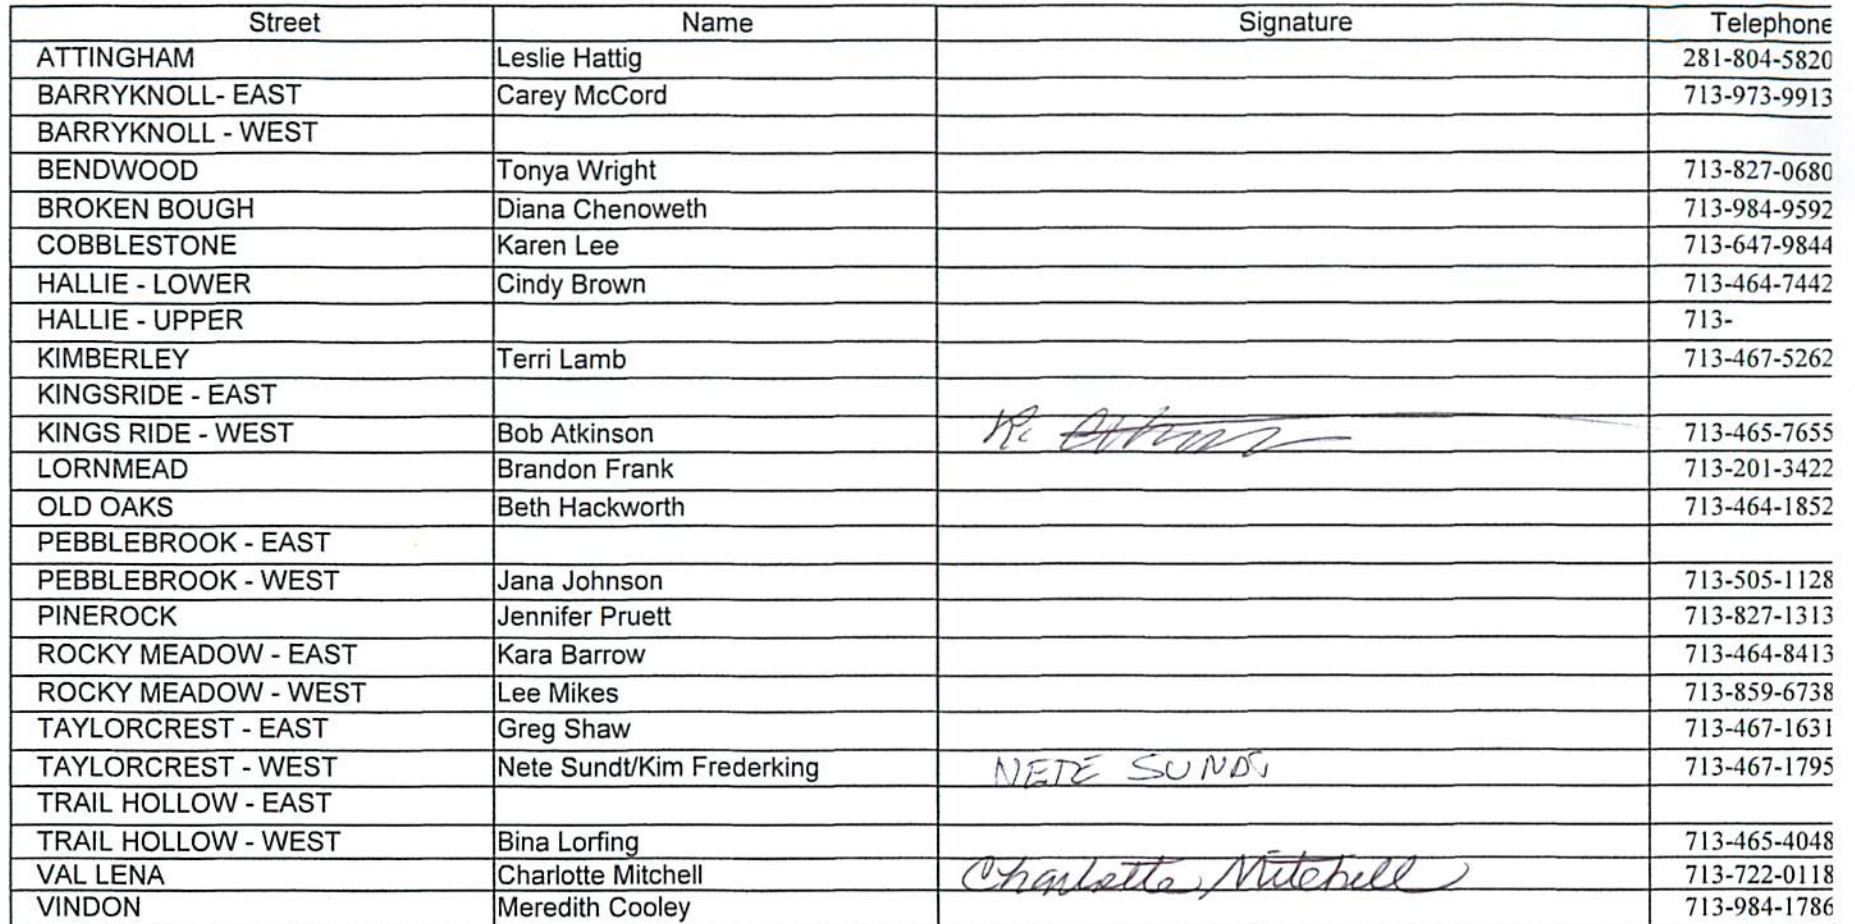 Street Name Signature Telephone
ATTINGHAM Leslie Hattig 281-804-5820
BARRYKNOLL- EAST Carey McCord 713-973-9913
BARRYKNOLL - WEST
BENDWOOD Tonya Wright 713-827-0680
BROKEN BOUGH Diana Chenoweth 713-984-9592
COBBLESTONE Karen Lee 713-647-9844
HALLIE - LOWER Cindy Brown 713-464-7442
HALLIE - UPPER 713-
KIMBERLEY Terri Lamb 713-467-5262
KINGSRIDE - EAST
KINGS RIDE - WEST Bob Atkinson R. Atkinson 713-465-7655
LORNMEAD Brandon Frank 713-201-3422
OLD OAKS Beth Hackworth 713-464-1852
PEBBLEBROOK - EAST
PEBBLEBROOK - WEST Jana Johnson 713-505-1128
PINEROCK Jennifer Pruett 713-827-1313
ROCKY MEADOW - EAST Kara Barrow 713-464-8413
ROCKY MEADOW - WEST Lee Mikes 713-859-6738
TAYLORCREST - EAST Greg Shaw 713-467-1631
TAYLORCREST - WEST Nete Sundt/Kim Frederking NETE SUNDT 713-467-1795
TRAIL HOLLOW - EAST
TRAIL HOLLOW - WEST Bina Lorfing 713-465-4048
VAL LENA Charlotte Mitchell Charlotte Mitchell 713-722-0118
VINDON Meredith Cooley 713-984-1786